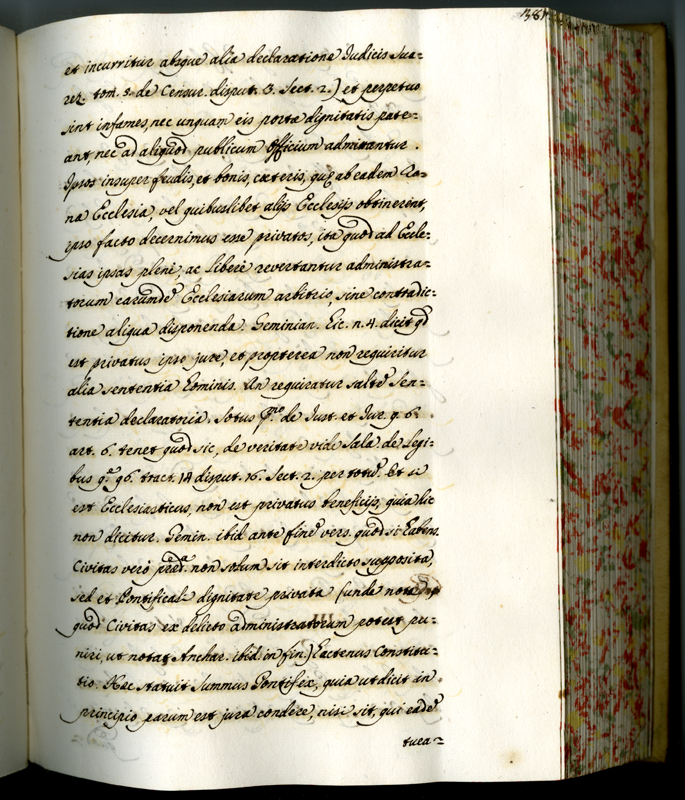 et incurritur absque alia declaratione Iudicis Sua=
rez. tom. 5. de Censur. disput. 3. Sect. 2.) et perpetuo
sint infames, nec unquam eis porta dignitatis pate=
ant, nec ad aliquod publicum officium admittantur.
Ipsos insuper feudis, et bonis, cæteris, quæ ab eadem Ro=
na Ecclesia, vel quibuslibet alijs Ecclesijs obtinerent,
ipso facto decernimus esse privatos, ita quod ad Eccle=
sias ipsas plenè, ac liberè revertantur administra=
torum earumde Ecclesiarum arbitrio, sine contradic=
tione aliqua disponenda. Geminian. hic. n. 4. dicit qd
est privatus ipso jure, et propterea non requiritur
alia sententia hominis. An requiratur salte Sen=
tentia declaratoria. Sotus de Iust. et Iur. q. 6.
art. 6. tenet quod sic, de veritate vide Sala de Legi=
bus q. 96. tract. 14 disput. 16. Sect. 2. per totu. Et si
est Ecclesiasticus, non est privatus beneficijs, quia hic
non dicitur. Gemin. ibid. ante fine vers. quod si habens.
Civitas verò præd.a non solum sit interdicto supposita,
sed et Pontificali dignitate privata (unde nota
quod Civitas ex delicto administratorum potest pu=
niri, ut notat Anchar. ibid. in fin.) hactenus Constitu=
tio. Hæc statuit Summus Pontifex, quia ut dicit in
principio parum est jura condere, nisi sit, qui eade
tuea=